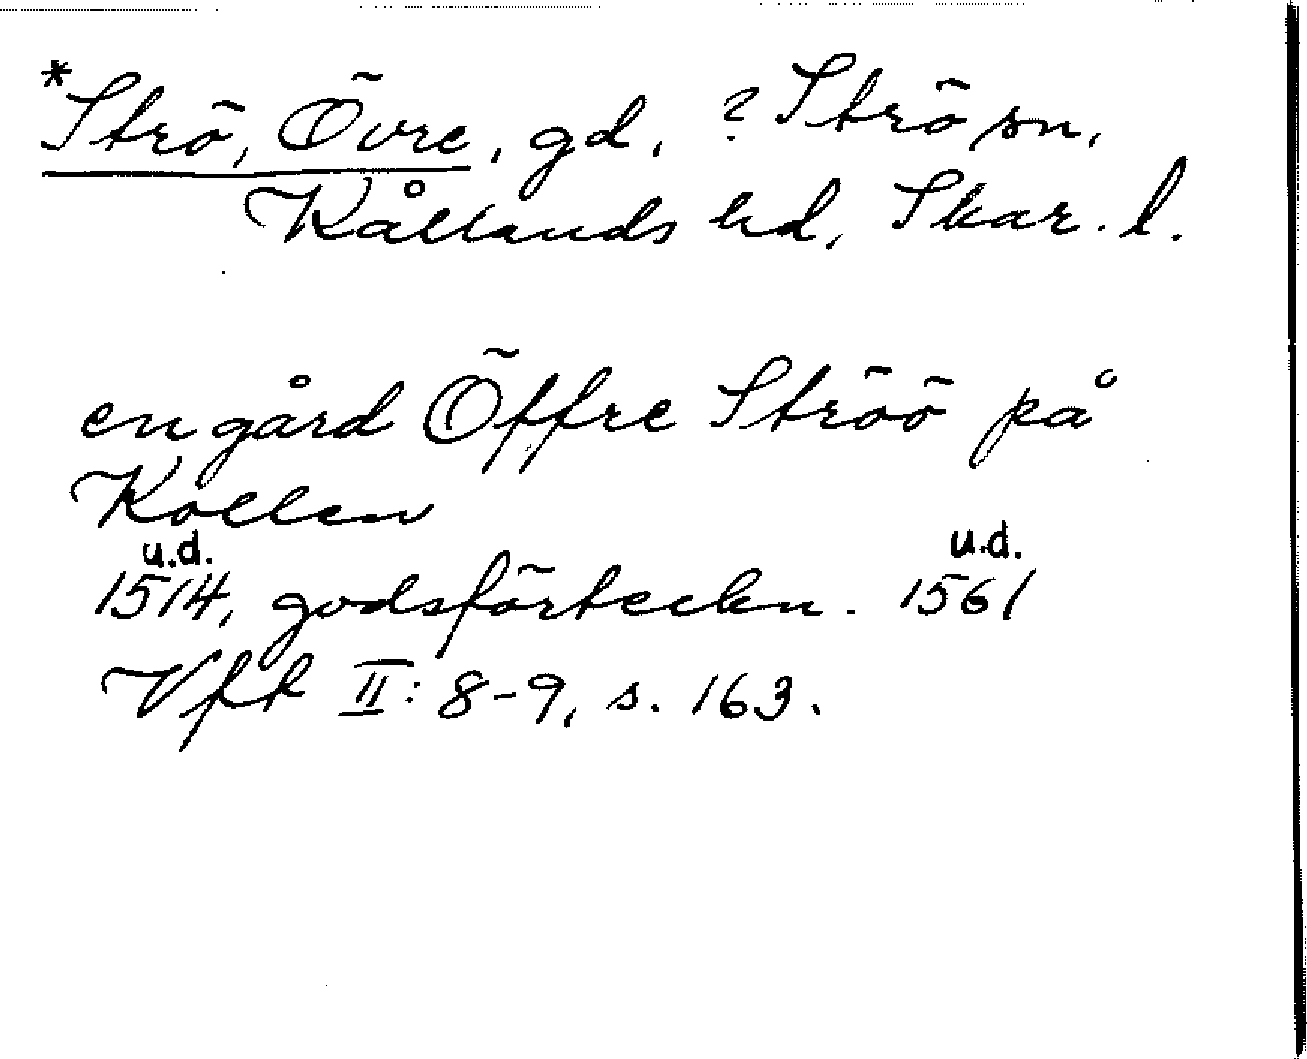 *Strö, Övre, gd, ? Strö sn,
Kållands hd, Skar. l.
en gård Öffre Ströö på
Kollen
u.d. u.d.
1514, godsförteckn. 1561
Vfft II: 8-9, s. 163.